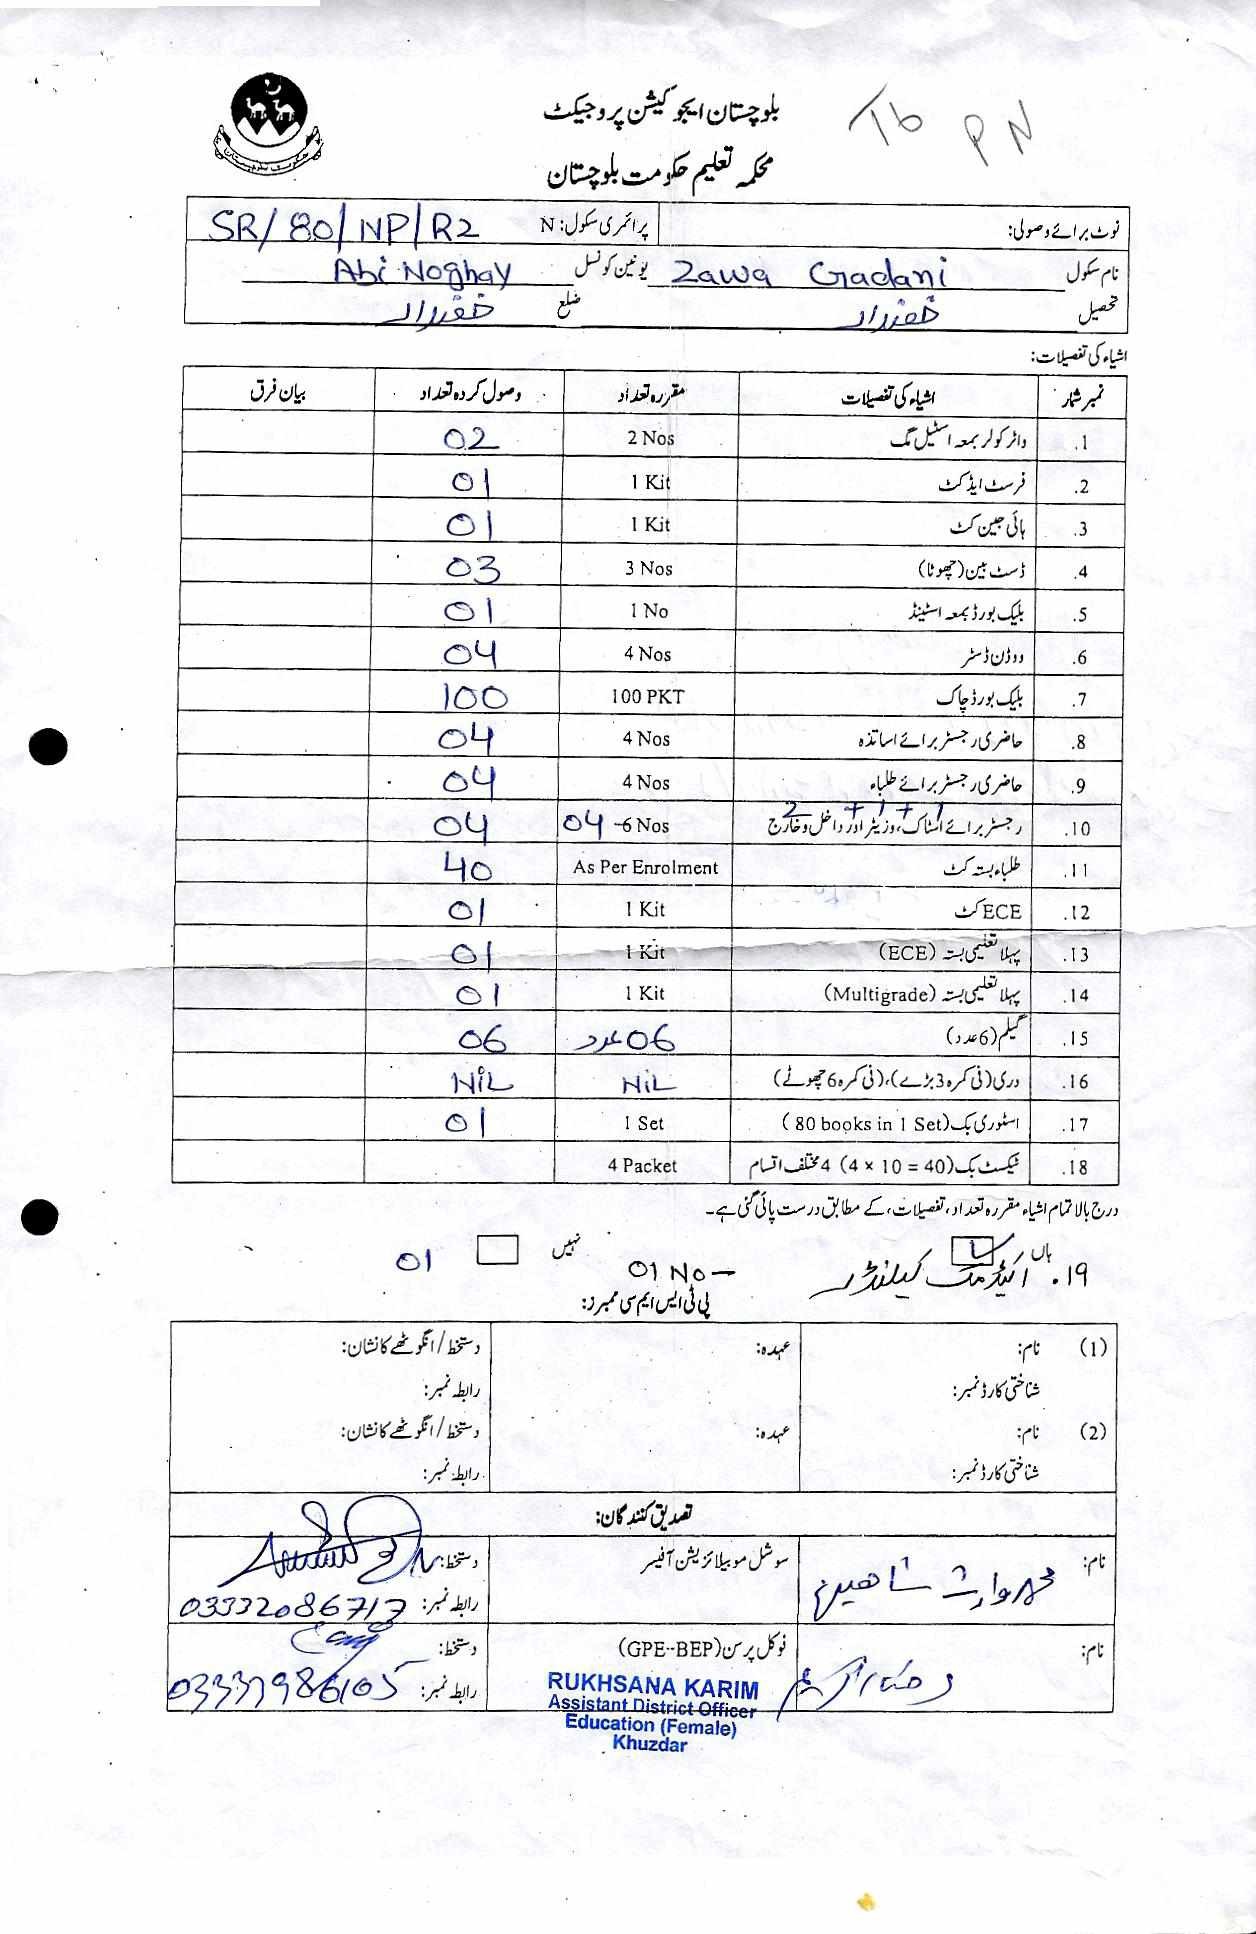 بلوچستان ایجوکیشن پروجیکٹ
محکمہ تعلیم حکومت بلوچستان
Tb PN
نوٹ برائے وصولی: پرائمری سکول: N SR/80/NP/R2
نام سکول Zawa Gadani یونین کونسل Abi Noghay
تحصیل خضدار ضلع خضدار
اشیاء کی تفصیلات:
نمبر شمار اشیاء کی تفصیلات مقررہ تعداد وصول کردہ تعداد بیان فرق
1. واٹر کولر بمعہ اسٹیل مگ 2 Nos 02
2. فرسٹ ایڈ کٹ 1 Kit 01
3. ہائی جین کٹ 1 Kit 01
4. ڈسٹ بین (چھوٹا) 3 Nos 03
5. بلیک بورڈ بمعہ اسٹینڈ 1 No 01
6. ووڈن ڈسٹر 4 Nos 04
7. بلیک بورڈ چاک 100 PKT 100
8. حاضری رجسٹر برائے اساتذہ 4 Nos 04
9. حاضری رجسٹر برائے طلباء 4 Nos 04
2 + 1 + 1
10. رجسٹر برائے اسٹاک، وزیٹر اور داخل و خارج 04 -6 Nos 04
11. طلباء بستہ کٹ As Per Enrolment 40
12. ECE کٹ 1 Kit 01
13. پہلا تعلیمی بستہ (ECE) 1 Kit 01
14. پہلا تعلیمی بستہ (Multigrade) 1 Kit 01
15. گیلم (6 عدد) 06 عدد 06
16. دری (فی کمرہ 3 بڑے)، (فی کمرہ 6 چھوٹے) NiL NiL
17. اسٹوری بک (80 books in 1 Set) 1 Set 01
18. ٹیکسٹ بک (4 × 10 = 40) 4 مختلف اقسام 4 Packet
درج بالا تمام اشیاء مقررہ تعداد، تفصیلات، کے مطابق درست پائی گئی ہے۔
ہاں نہیں
19. اکیڈمک کیلنڈر 01 No — 01
پی ٹی ایس ایم سی ممبرز:
(1) نام: عہدہ: دستخط/انگوٹھے کا نشان:
شناختی کارڈ نمبر: رابطہ نمبر:
(2) نام: عہدہ: دستخط/انگوٹھے کا نشان:
شناختی کارڈ نمبر: رابطہ نمبر:
تصدیق کنندگان:
نام: محمد وارث شاھین سوشل موبیلائزیشن آفیسر دستخط:
رابطہ نمبر: 03332086717
نام: رخسانہ کریم فوکل پرسن (GPE-BEP) دستخط:
رابطہ نمبر: 03337986105
RUKHSANA KARIM
Assistant District Officer
Education (Female)
Khuzdar